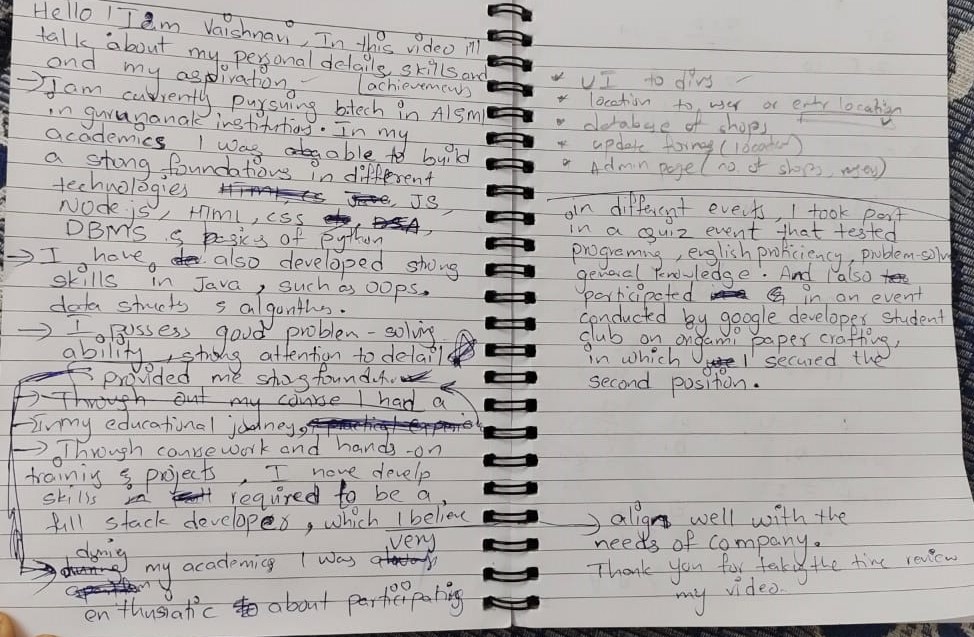 Hello ! I am Vaishnavi, In this video i'll
talk about my personal details, skills and
and my aspiration achievements
→ I am currently pursuing btech in AI&ML
in gurunanak institutions. In my
academics I was able to build
a stong foundations in different
technologies JS,
Node.js, HTML, CSS
DBMS & basics of python
→ I have also developed stong
skills in Java, such as OOPs,
data structs & algorithms.
→ I possess good problem-solving
ability, strong attention to detail
provided me stong foundation
→ Through out my course I had a
→ In my educational journey,
→ Through coursework and hands-on
training & projects, I have develp
skills required to be a
full stack developer, which I believe
during my academics I was very
enthusiatic about participating
* UI to divs
* location to user or enter location
* database of shops
* update timings (location)
* Admin page (no. of shops, users)
in different events I took part
in a quiz event that tested
programing, english proficiency, problem-solv
general knowledge. And I also
participated in an event
conducted by google developer student
club on origami paper crafting,
in which I secured the
second position.
→ align well with the
needs of company.
Thank you for taking the time review
my video.